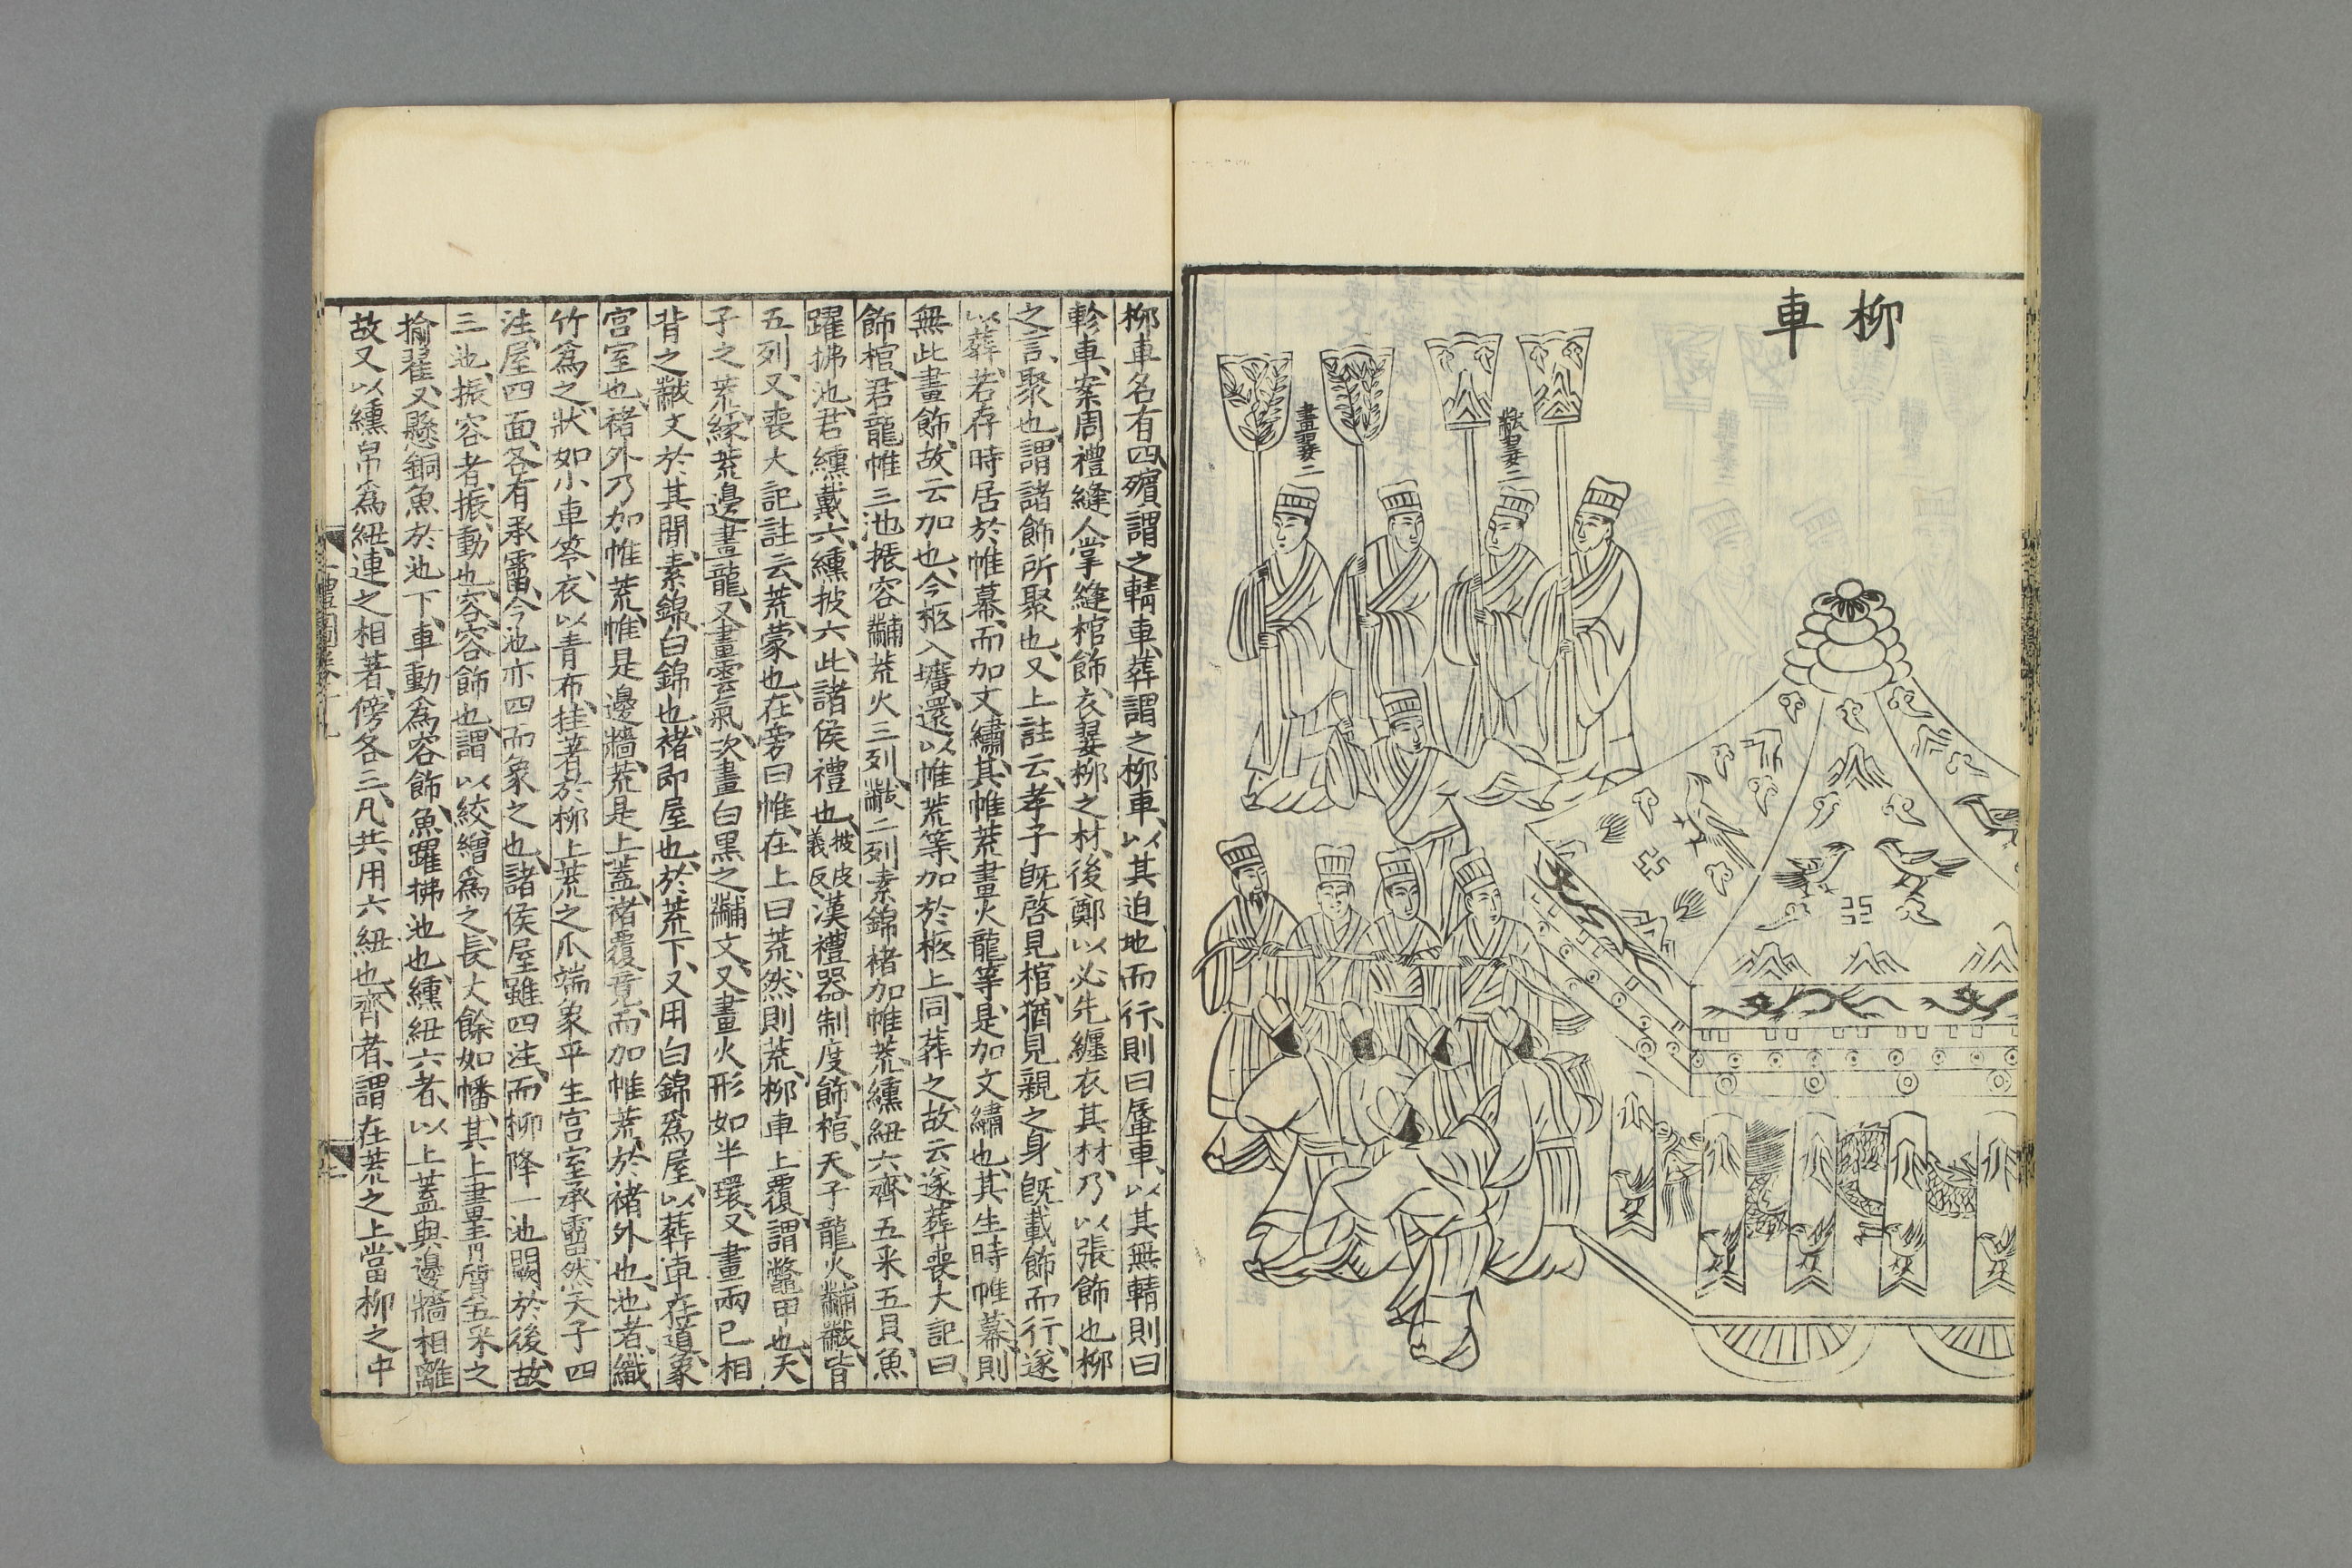 柳車
畫翣二
黻翣二
柳車名有四殯謂之輤車葬謂之柳車以其迫地而行則曰蜃車以其無輤則曰
軫車案周禮縫人掌縫棺飾衣翣柳之材後鄭以必先纏衣其材乃以張飾也柳
之言聚也謂諸飾所聚也又上註云孝子旣啓見棺猶見親之身旣載飾而行遂
以葬若存時居於帷幕而加文繡其帷荒畫火龍等是加文繡也其生時帷幕則
無此畫飾故云加也今柩入壙還以帷荒等加於柩上同葬之故云遂葬喪大記曰
飾棺君龍帷三池振容黼荒火三列黻二列素錦褚加帷荒纁紐六齊五采五貝魚
躍拂池君纁戴六纁披六此諸侯禮也披皮義反漢禮器制度飾棺天子龍火黼黻皆
五列又喪大記註云荒蒙也在旁曰帷在上曰荒然則荒柳車上覆謂鼈甲也天
子之荒緣荒邊畫龍又畫雲氣次畫白黑之黼文又畫火形如半環又畫兩已相
背之黻文於其間素錦白錦也褚即屋也於荒下又用白錦爲屋以葬車在道象
宮室也褚外乃加帷荒帷是邊牆荒是上蓋褚覆竟而加帷荒於褚外也池者織
竹爲之狀如小車笭衣以青布挂著於柳上荒之爪端象平生宮室承霤然天子四
注屋四面各有承霤今池亦四而象之也諸侯屋雖四注而柳降一池闕於後故
三池振容者振動也容容飾也謂以絞繒爲之長丈餘如幡其上畫青質五采之
揄翟又懸銅魚於池下車動爲容飾魚躍拂池也纁紐六者以上蓋與邊牆相離
故又以纁帛爲紐連之相著傍各三凡共用六紐也齊者謂在荒之上當柳之中